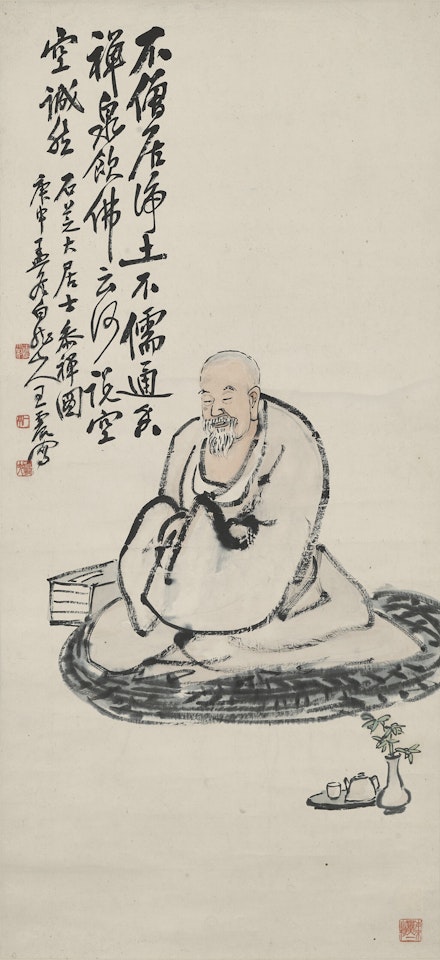 不僧居淨土不儒通玄
禪泉飲佛云何說空
空誠然
石芝大居士參禪圖
庚申孟冬白龍山人王震寫